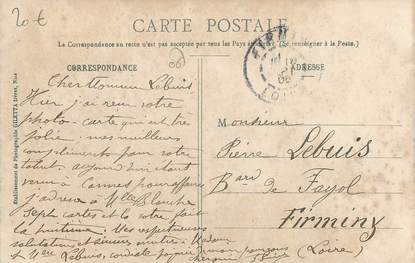 20 €
CARTE POSTALE
La Correspondance au recto n'est pas acceptée par tous les Pays étrangers (Se renseigner à la Poste.)
CORRESPONDANCE
ADRESSE
Etablissement de Photographie GILETTA frères, Nice
Cher Monsieur Lebuis
Hier j'ai reçu votre
photo-carte qui est très
jolie. mes meilleurs
compliments pour votre
venu à Cannes pour affaires
j'adresse à Mlle Blanche
Sept cartes et la votre fait
la huitième. Mes respectueuses
salutations
Mme Lebuis, cordiale poignée
Monsieur
Pierre Lebuis
Bard de Fayol
Firminy
(Loire)